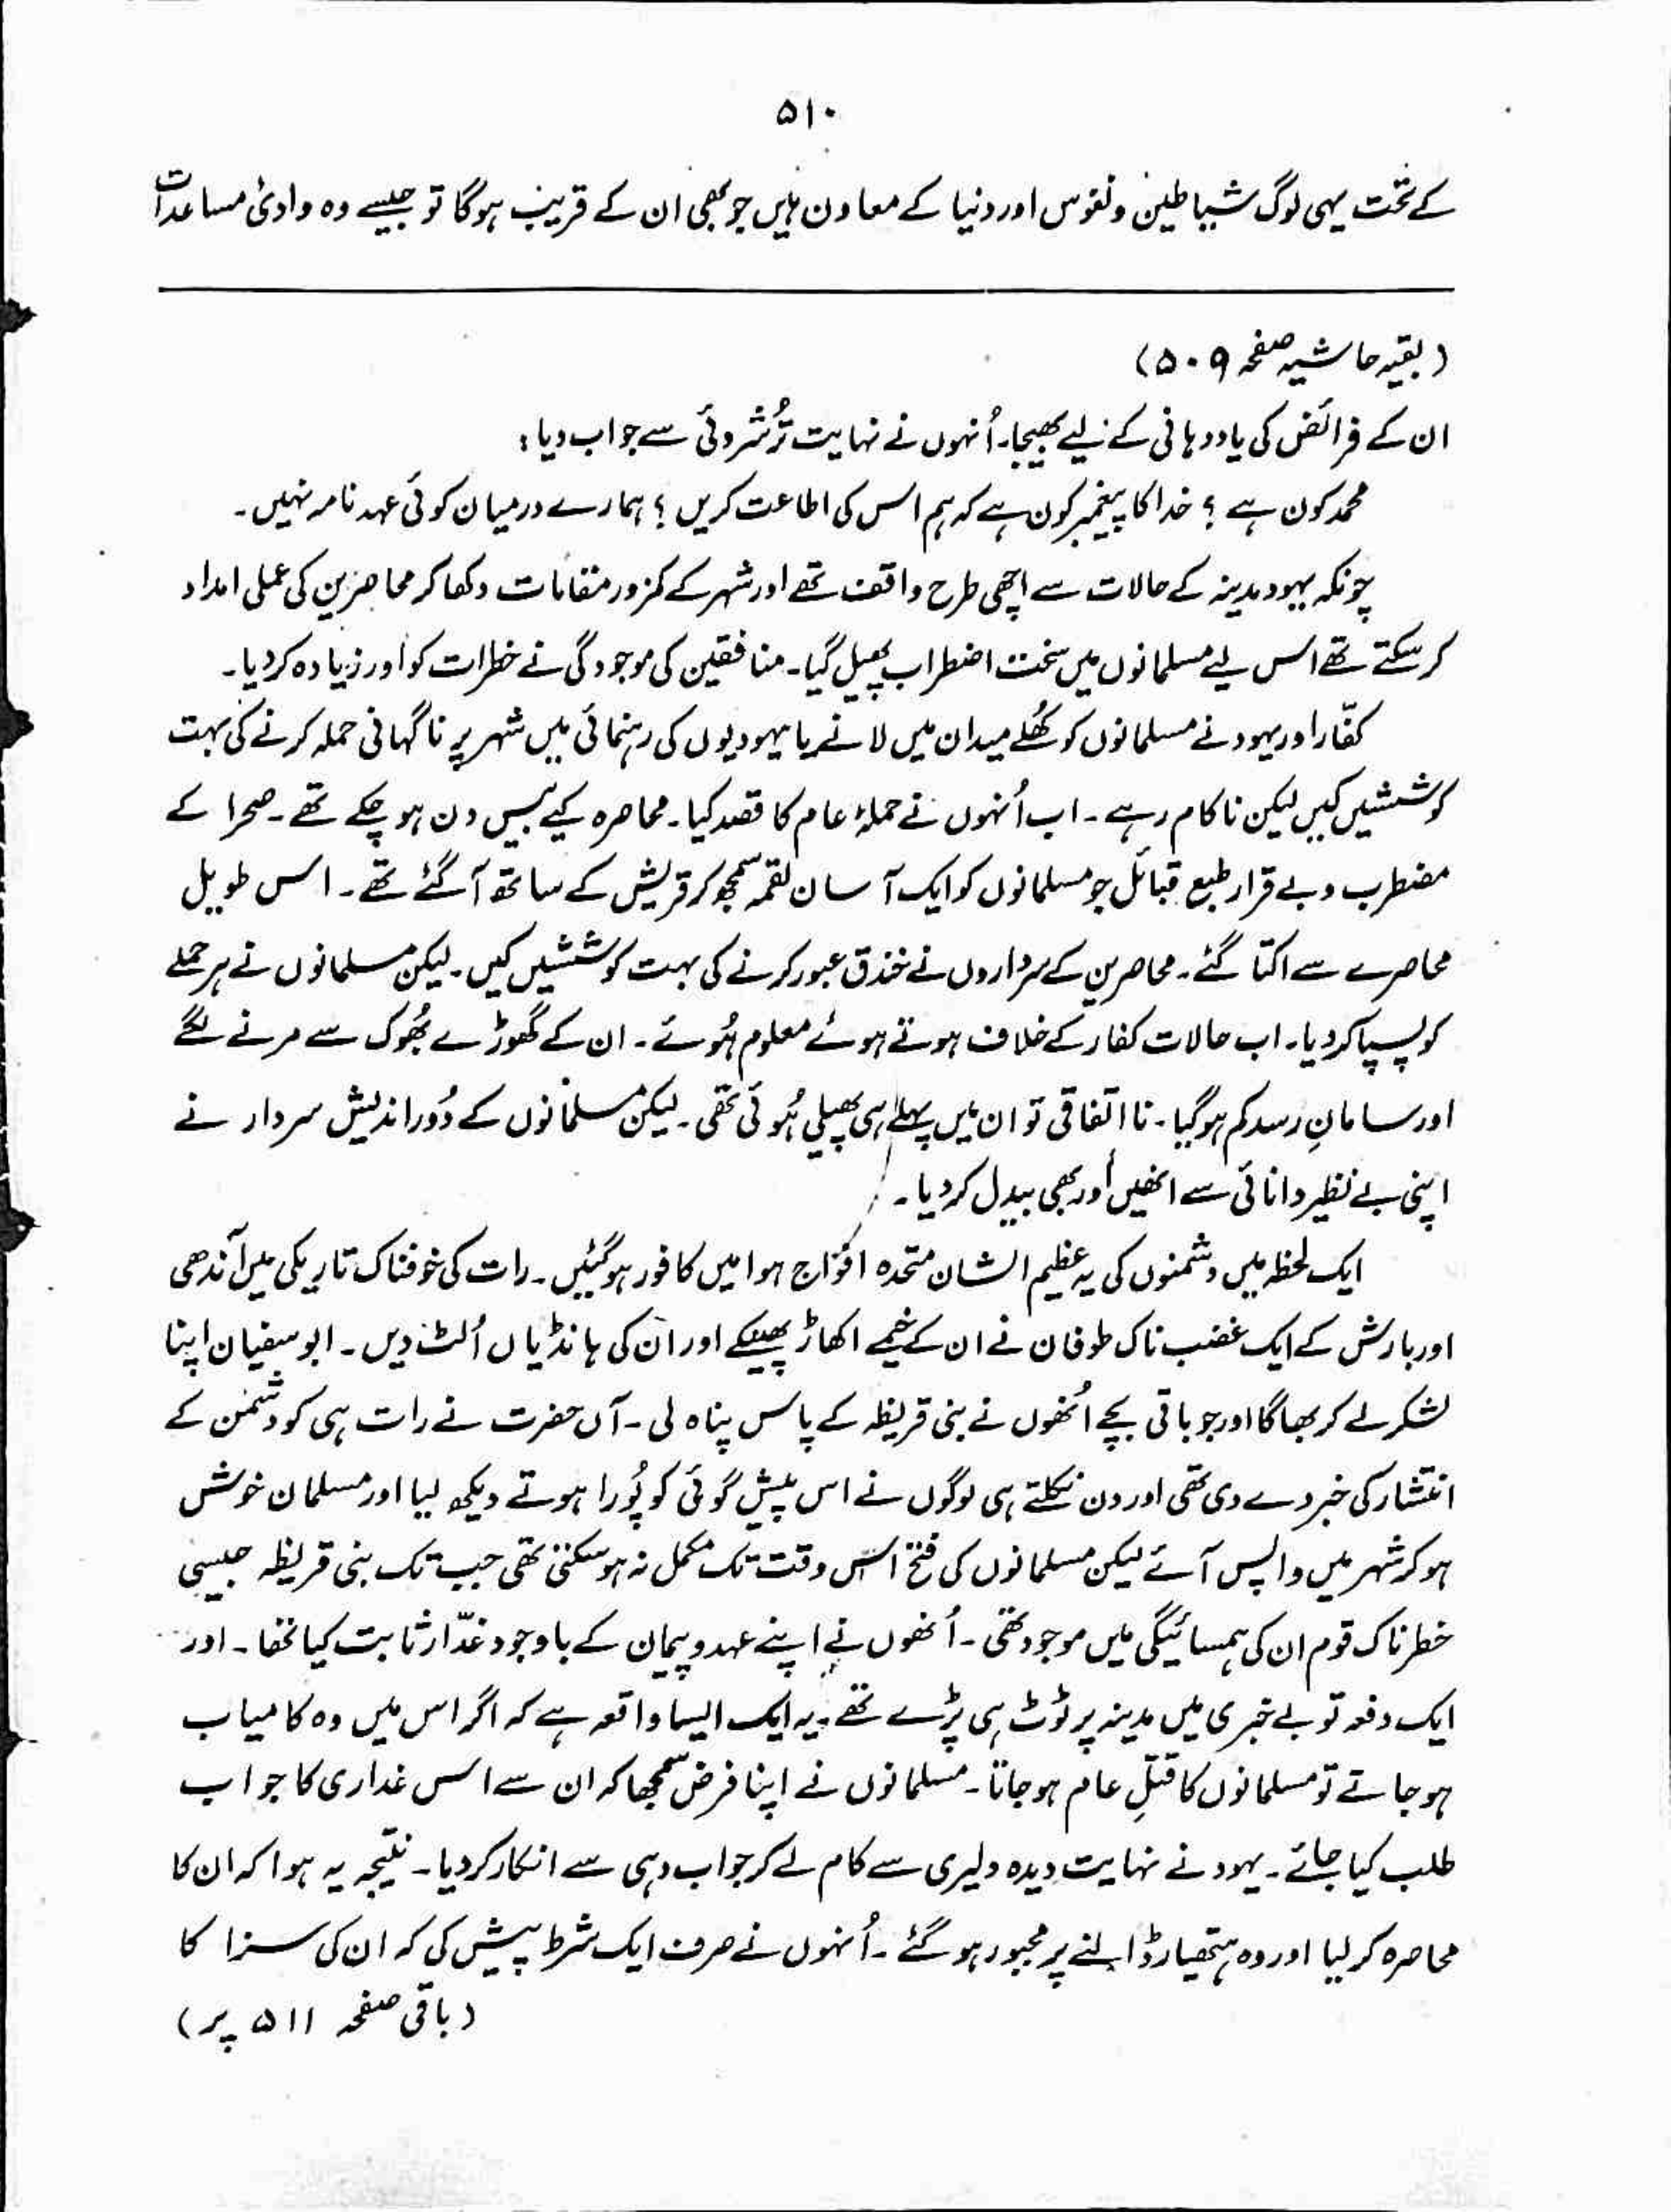 ۵۱۰
کے تحت یہی لوگ شیاطین و نفوس اور دنیا کے معاون ہیں جو بھی ان کے قریب ہوگا تو جیسے وہ وادئ مساعدات
(بقیہ حاشیہ صفحہ ۵۰۹)
ان کے فرائض کی یاد دہانی کے لیے بھیجا۔ اُنہوں نے نہایت تُرشروئی سے جواب دیا:
محمد کون ہے؟ خدا کا پیغمبر کون ہے کہ ہم اس کی اطاعت کریں؟ ہمارے درمیان کوئی عہد نامہ نہیں۔
چونکہ یہود مدینہ کے حالات سے اچھی طرح واقف تھے اور شہر کے کمزور مقامات دکھا کر محاصرین کی عملی امداد
کر سکتے تھے اس لیے مسلمانوں میں سخت اضطراب پھیل گیا۔ منافقین کی موجودگی نے خطرات کو اور زیادہ کر دیا۔
کفّار اور یہود نے مسلمانوں کو کُھلے میدان میں لانے یا یہودیوں کی رہنمائی میں شہر پر ناگہانی حملہ کرنے کی بہت
کوششیں کیں لیکن ناکام رہے۔ اب اُنہوں نے حملۂ عام کا قصد کیا۔ محاصرہ کیے بیس دن ہو چکے تھے۔ صحرا کے
مضطرب و بے قرار طبع قبائل جو مسلمانوں کو ایک آسان لقمہ سمجھ کر قریش کے ساتھ آ گئے تھے۔ اس طویل
محاصرے سے اکتا گئے۔ محاصرین کے سرداروں نے خندق عبور کرنے کی بہت کوششیں کیں۔ لیکن مسلمانوں نے ہر حملے
کو پسپا کر دیا۔ اب حالات کفار کے خلاف ہوتے ہوئے معلوم ہُوئے۔ ان کے گھوڑے بُھوک سے مرنے لگے
اور سامانِ رسد کم ہو گیا۔ نا اتفاقی تو ان میں پہلے ہی پھیلی ہُوئی تھی۔ لیکن مسلمانوں کے دُور اندیش سردار نے
اپنی بے نظیر دانائی سے انھیں اَور بھی بیدل کر دیا۔
ایک لحظہ میں دشمنوں کی یہ عظیم الشان متحدہ افواج ہوا میں کافور ہو گئیں۔ رات کی خوفناک تاریکی میں آندھی
اور بارش کے ایک غضب ناک طوفان نے ان کے خیمے اکھاڑ پھینکے اور ان کی ہانڈیاں اُلٹ دیں۔ ابو سفیان اپنا
لشکر لے کر بھاگا اور جو باقی بچے اُنھوں نے بنی قریظہ کے پاس پناہ لی۔ آں حضرت نے رات ہی کو دشمن کے
انتشار کی خبر دے دی تھی اور دن نکلتے ہی لوگوں نے اس پیش گوئی کو پُورا ہوتے دیکھ لیا اور مسلمان خوش
ہو کر شہر میں واپس آئے لیکن مسلمانوں کی فتح اس وقت تک مکمل نہ ہو سکتی تھی جب تک بنی قریظہ جیسی
خطرناک قوم ان کی ہمسائیگی میں موجود تھی۔ اُنھوں نے اپنے عہد و پیمان کے باوجود غدّار ثابت کیا تھا۔ اور
ایک دفعہ تو بے خبری میں مدینہ پر ٹوٹ ہی پڑے تھے۔ یہ ایک ایسا واقعہ ہے کہ اگر اس میں وہ کامیاب
ہو جاتے تو مسلمانوں کا قتلِ عام ہو جاتا۔ مسلمانوں نے اپنا فرض سمجھا کہ ان سے اس غداری کا جواب
طلب کیا جائے۔ یہود نے نہایت دیدہ دلیری سے کام لے کر جواب دہی سے انکار کر دیا۔ نتیجہ یہ ہوا کہ ان کا
محاصرہ کر لیا اور وہ ہتھیار ڈالنے پر مجبور ہو گئے۔ اُنہوں نے صرف ایک شرط پیش کی کہ ان کی سزا کا
(باقی صفحہ ۵۱۱ پر)